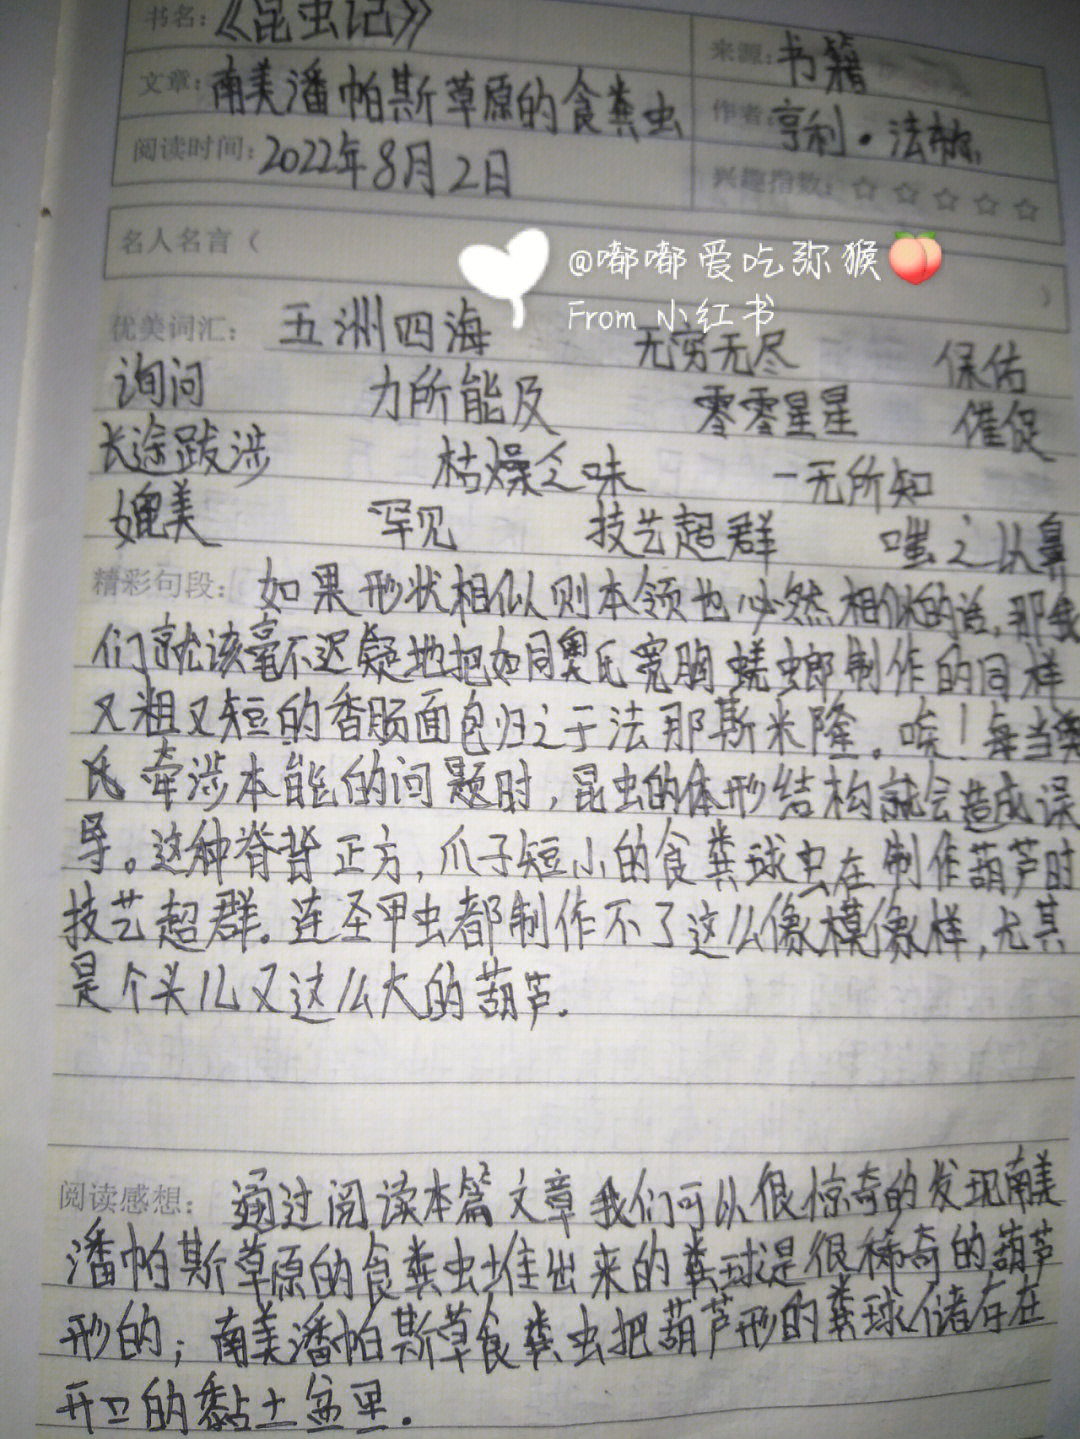 书名：《昆虫记》
来源：书籍
文章：南美潘帕斯草原的食粪虫
作者：亨利·法布尔
阅读时间：2022年8月2日
兴趣指数：☆☆☆☆☆
名人名言（ ）
@嘟嘟爱吃弥猴🍑
From 小红书
优美词汇： 五洲四海 无穷无尽 保佑
询问 力所能及 零零星星 催促
长途跋涉 枯燥乏味 一无所知
媲美 罕见 技艺超群 嗤之以鼻
精彩句段： 如果形状相似则本领也必然相似的话，那我
们就该毫不迟疑地把如同奥氏宽胸蜣螂制作的同样
又粗又短的香肠面包归之于法那斯米隆。唉！每当
牵涉本能的问题时，昆虫的体形结构就会造成误
导。这种脊背正方，爪子短小的食粪球虫在制作葫芦时
技艺超群。连圣甲虫都制作不了这么像模像样，尤其
是个头儿又这么大的葫芦．
阅读感想： 通过阅读本篇文章我们可以很惊奇的发现南美
潘帕斯草原的食粪虫堆出来的粪球是很稀奇的葫芦
形的；南美潘帕斯草食粪虫把葫芦形的粪球储存在
开口的黏土盆里．